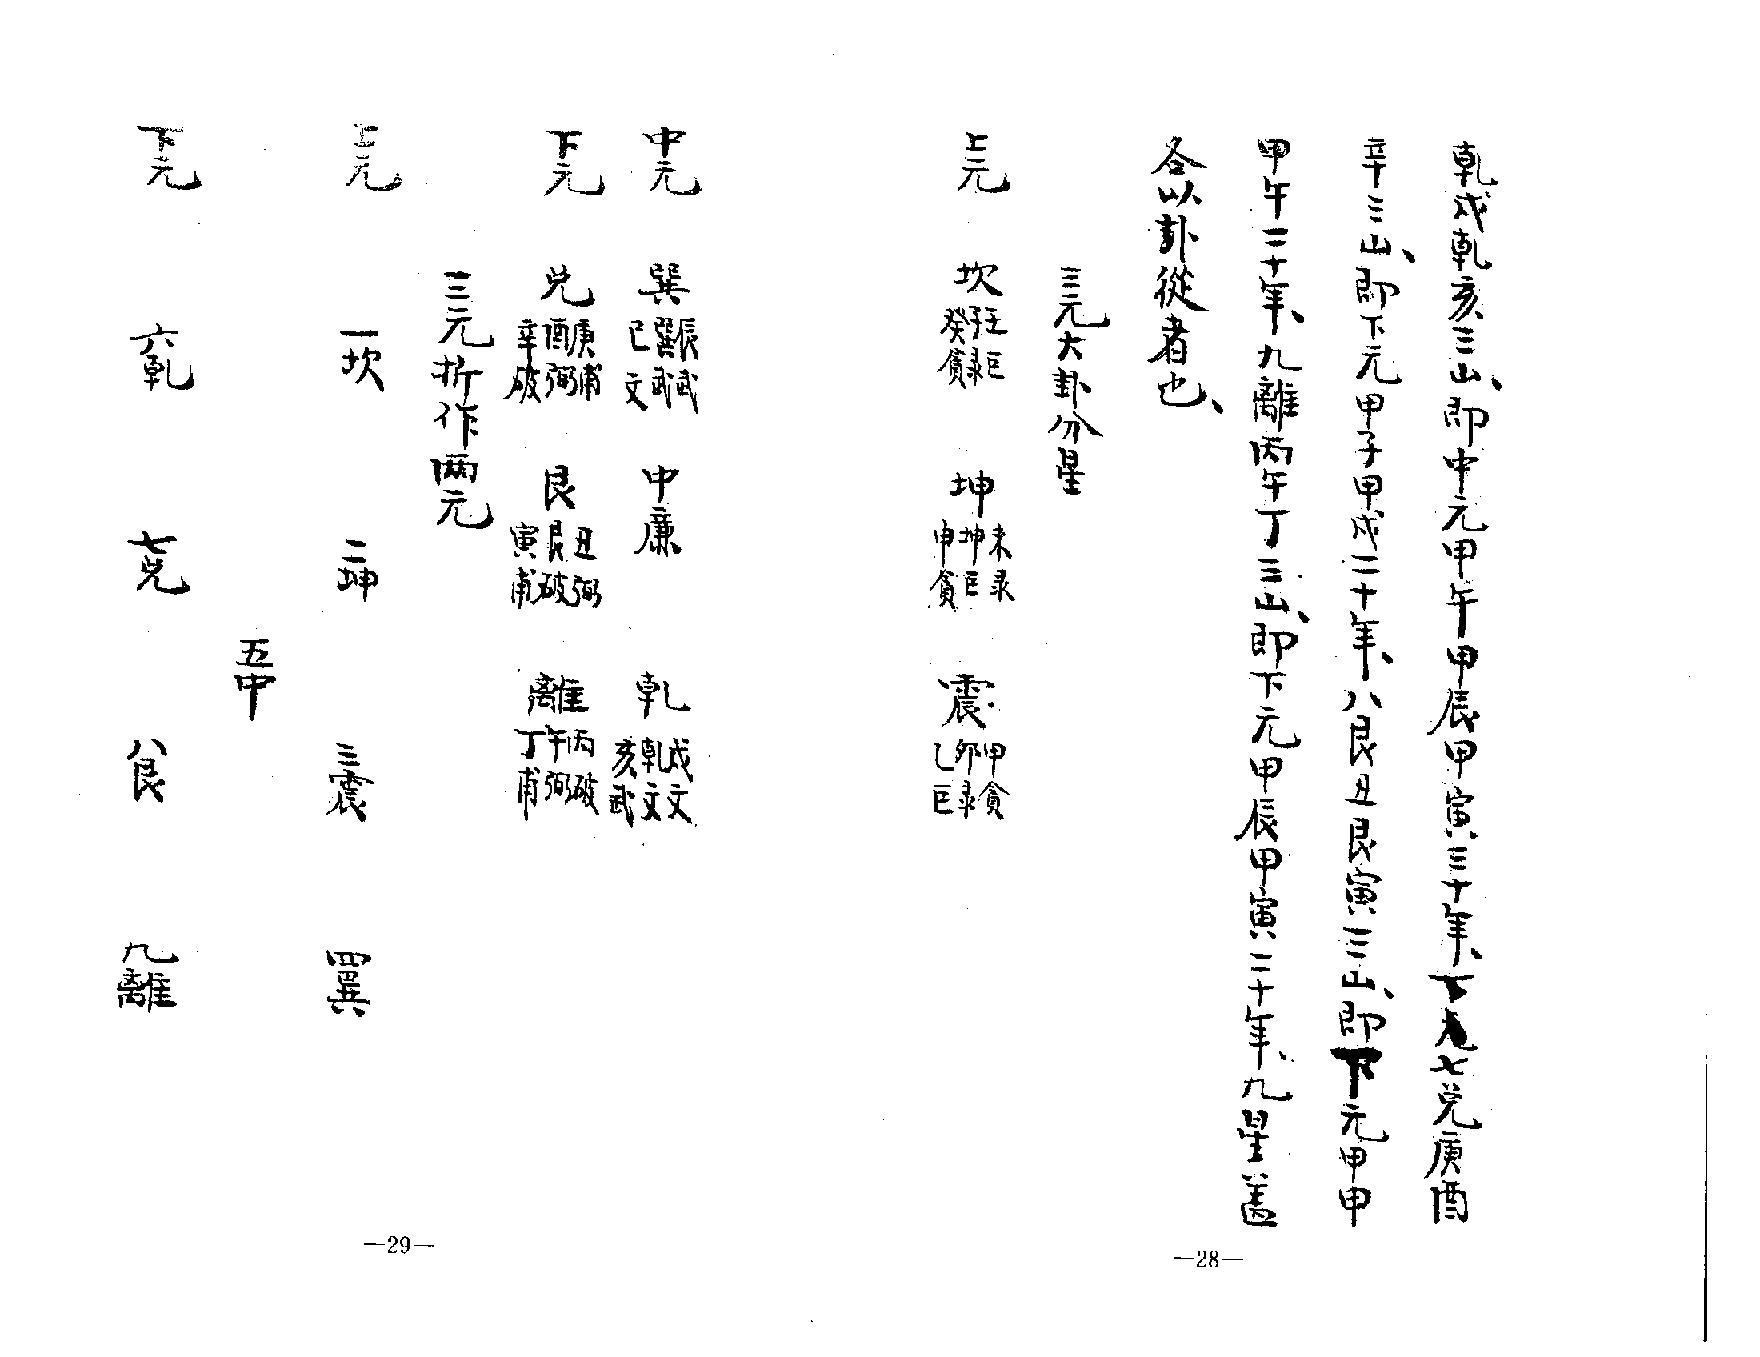 乾戌乾亥三山、即中元甲午甲辰甲寅三十年、下元七兑庚酉
辛三山、即下元甲子甲戌二十年、八艮丑艮寅三山、即下元甲申
甲午二十年、九離丙午丁三山、即下元甲辰甲寅二十年、九星盖
各以卦從者也、
三元大卦分星
上元 坎 壬巨 子录 癸貪 坤 未录 坤巨 申貪 震 甲貪 卯录 乙巨
—28—
中元 巽 辰武 巽武 巳文 中廉 乾 戌文 乾文 亥武
下元 兑 庚甫 酉弼 辛破 艮 丑弼 艮破 寅甫 離 丙破 午弼 丁甫
三元折作两元
上元 一坎 二坤 三震 四巽
五中
下元 六乾 七兑 八艮 九離
—29—